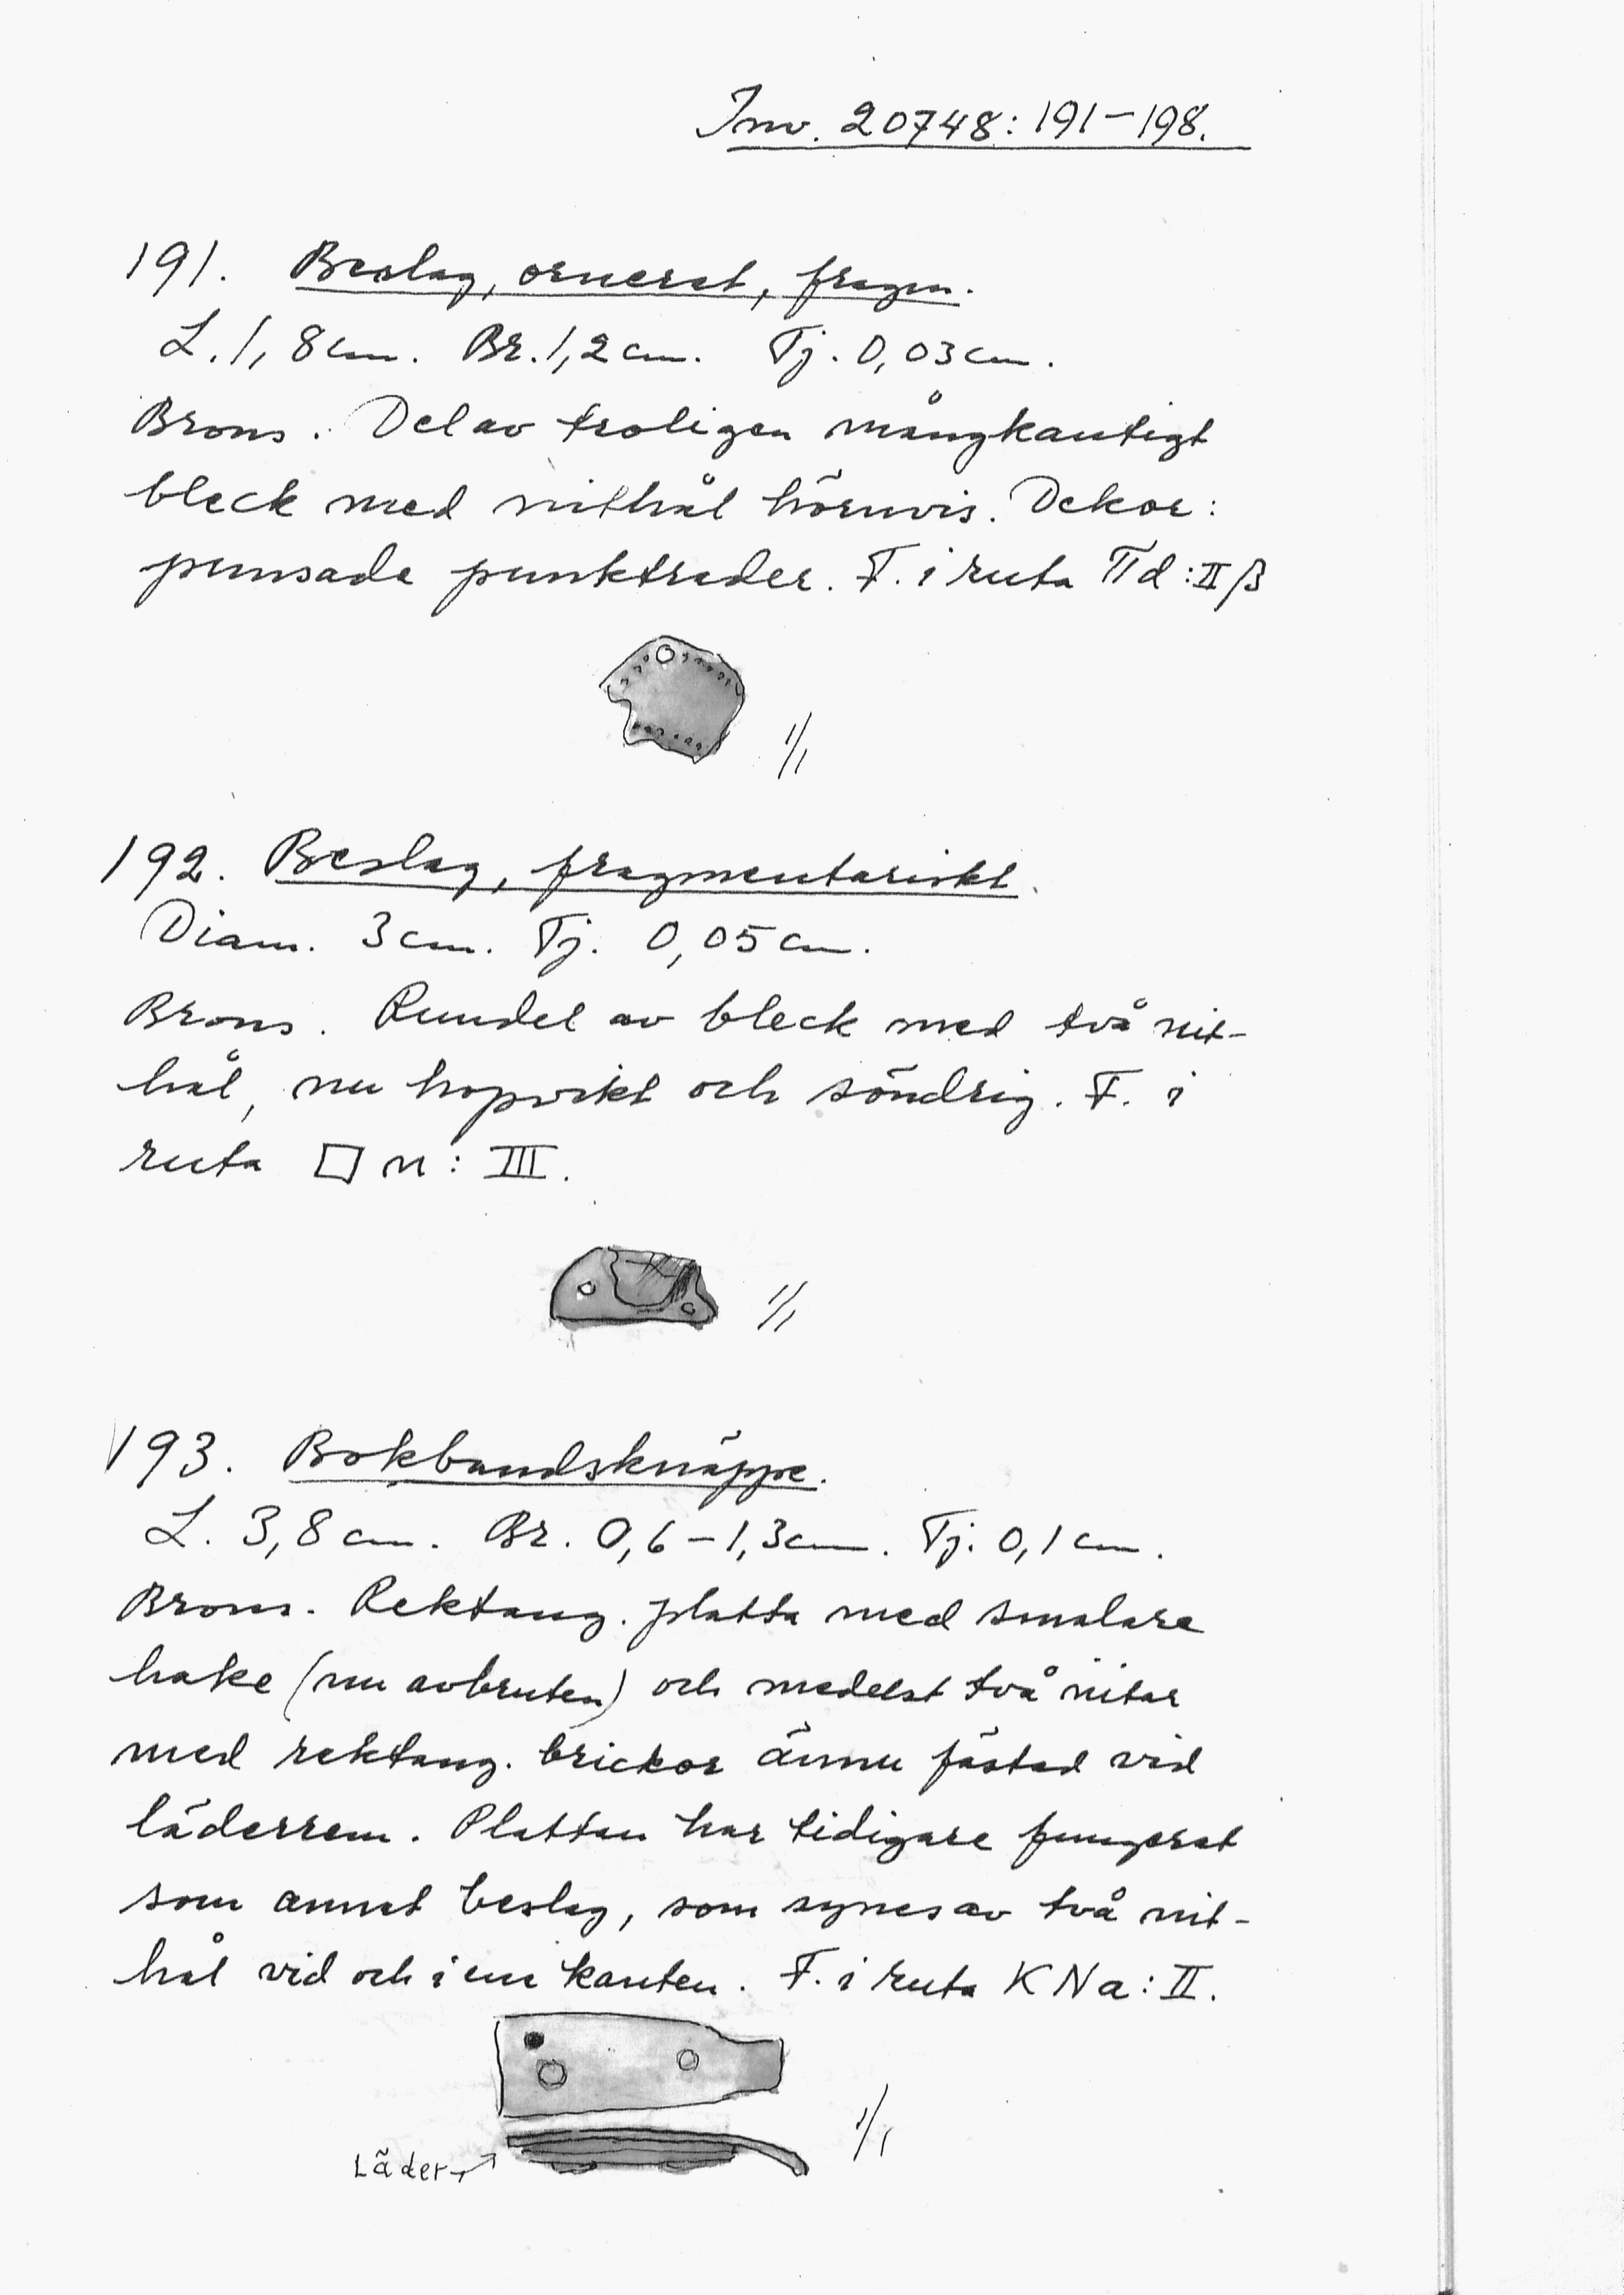 Inv. 20748: 191–198.
191. Beslag, ornerat, fragm.
L. 1,8 cm. Br. 1,2 cm. Tj. 0,03 cm.
Brons. Del av troligen mångkantigt
bleck med nithål hörnvis. Dekor:
punsade punktrader. F. i ruta Πd:II β
1/1
192. Beslag, fragmentariskt.
Diam. 3 cm. Tj. 0,05 cm.
Brons. Rundel av bleck med två nit-
hål, nu hopvikt och söndrig. F. i
ruta □ n: III.
1/1
193. Bokbandsknäppe.
L. 3,8 cm. Br. 0,6–1,3 cm. Tj. 0,1 cm.
Brons. Rektang. platta med smalare
hake (nu avbruten) och medelst två nitar
med rektang. brickor ännu fästad vid
läderrem. Plattan har tidigare fungerat
som annat beslag, som synes av två nit-
hål vid och i ena kanten. F. i ruta KNa: II.
1/1
Läder